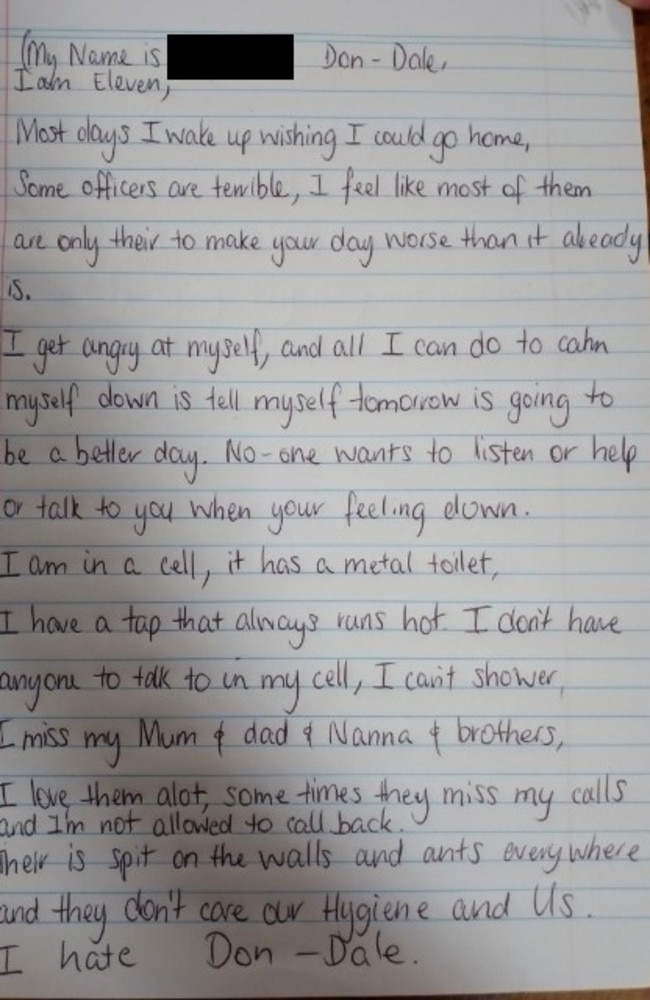 (My Name is Don-Dale,
I am Eleven,
Most days I wake up wishing I could go home,
Some officers are terrible, I feel like most of them
are only their to make your day worse than it already
is.
I get angry at myself, and all I can do to calm
myself down is tell myself tomorrow is going to
be a better day. No-one wants to listen or help
or talk to you when your feeling down.
I am in a cell, it has a metal toilet,
I have a tap that always runs hot. I don't have
anyone to talk to in my cell, I can't shower,
I miss my Mum & dad & Nanna & brothers,
I love them alot, some times they miss my calls
and I'm not allowed to call back.
Their is spit on the walls and ants everywhere
and they don't care our Hygiene and Us.
I hate Don-Dale.